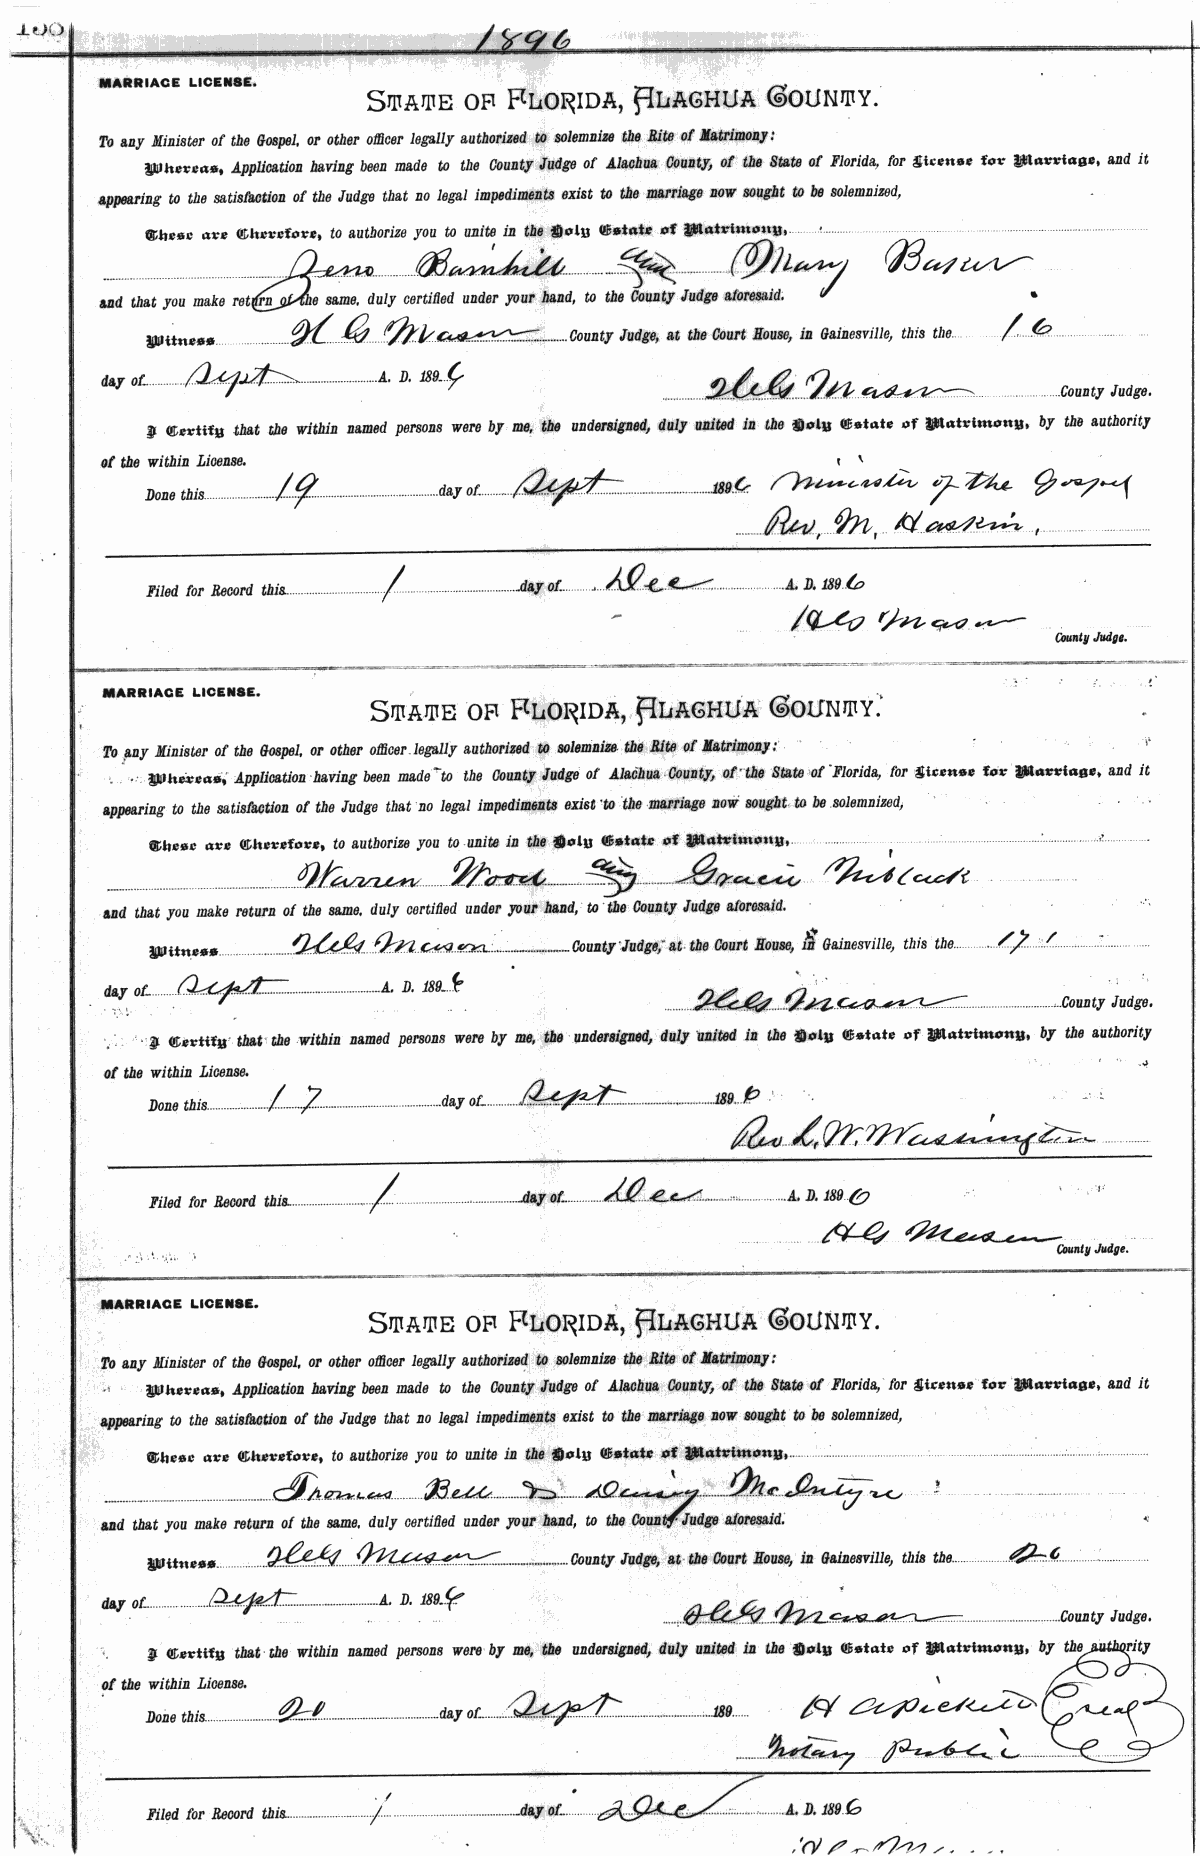 1896
MARRIAGE LICENSE.
STATE OF FLORIDA, ALACHUA COUNTY.
To any Minister of the Gospel, or other officer legally authorized to solemnize the Rite of Matrimony:
Whereas, Application having been made to the County Judge of Alachua County, of the State of Florida, for License for Marriage, and it
appearing to the satisfaction of the Judge that no legal impediments exist to the marriage now sought to be solemnized,
These are Therefore, to authorize you to unite in the Holy Estate of Matrimony,
Zeno Barnhill and Mary Baker
and that you make return of the same, duly certified under your hand, to the County Judge aforesaid.
Witness H G Mason County Judge, at the Court House, in Gainesville, this the 16
day of Sept A. D. 1896
H G Mason County Judge.
I Certify that the within named persons were by me, the undersigned, duly united in the Holy Estate of Matrimony, by the authority
of the within License.
Done this 19 day of Sept 1896 Minister of the Gospel
Rev. M. Haskin.
Filed for Record this 1 day of Dec A. D. 1896
H G Mason
County Judge.
MARRIAGE LICENSE.
STATE OF FLORIDA, ALACHUA COUNTY.
To any Minister of the Gospel, or other officer legally authorized to solemnize the Rite of Matrimony:
Whereas, Application having been made to the County Judge of Alachua County, of the State of Florida, for License for Marriage, and it
appearing to the satisfaction of the Judge that no legal impediments exist to the marriage now sought to be solemnized,
These are Therefore, to authorize you to unite in the Holy Estate of Matrimony,
Warren Wood and Gracie Niblack
and that you make return of the same, duly certified under your hand, to the County Judge aforesaid.
Witness H G Mason County Judge, at the Court House, in Gainesville, this the 17
day of Sept A. D. 1896
H G Mason County Judge.
I Certify that the within named persons were by me, the undersigned, duly united in the Holy Estate of Matrimony, by the authority
of the within License.
Done this 17 day of Sept 1896
Rev L. W. Washington
Filed for Record this 1 day of Dec A. D. 1896
H G Mason
County Judge.
MARRIAGE LICENSE.
STATE OF FLORIDA, ALACHUA COUNTY.
To any Minister of the Gospel, or other officer legally authorized to solemnize the Rite of Matrimony:
Whereas, Application having been made to the County Judge of Alachua County, of the State of Florida, for License for Marriage, and it
appearing to the satisfaction of the Judge that no legal impediments exist to the marriage now sought to be solemnized,
These are Therefore, to authorize you to unite in the Holy Estate of Matrimony,
Thomas Bell & Daisy McIntyre
and that you make return of the same, duly certified under your hand, to the County Judge aforesaid.
Witness H G Mason County Judge, at the Court House, in Gainesville, this the 20
day of Sept A. D. 1896
H G Mason County Judge.
I Certify that the within named persons were by me, the undersigned, duly united in the Holy Estate of Matrimony, by the authority
of the within License.
Done this 20 day of Sept 189 H A Pickett Seal
Notary Public
Filed for Record this 1 day of Dec A. D. 1896